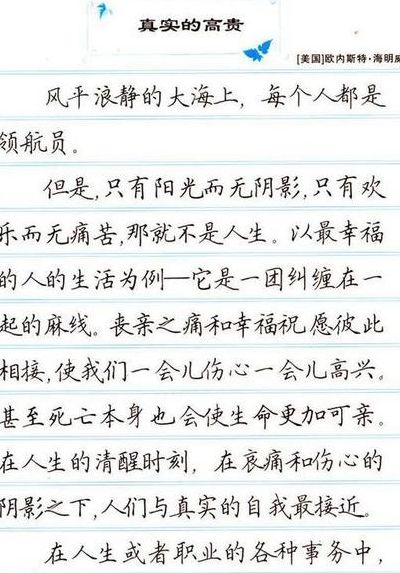 真实的高贵
[美国]欧内斯特·海明威
风平浪静的大海上，每个人都是
领航员。
但是,只有阳光而无阴影,只有欢
乐而无痛苦,那就不是人生。以最幸福
的人的生活为例—它是一团纠缠在一
起的麻线。丧亲之痛和幸福祝愿彼此
相接,使我们一会儿伤心一会儿高兴。
甚至死亡本身也会使生命更加可亲。
在人生的清醒时刻，在哀痛和伤心的
阴影之下,人们与真实的自我最接近。
在人生或者职业的各种事务中,